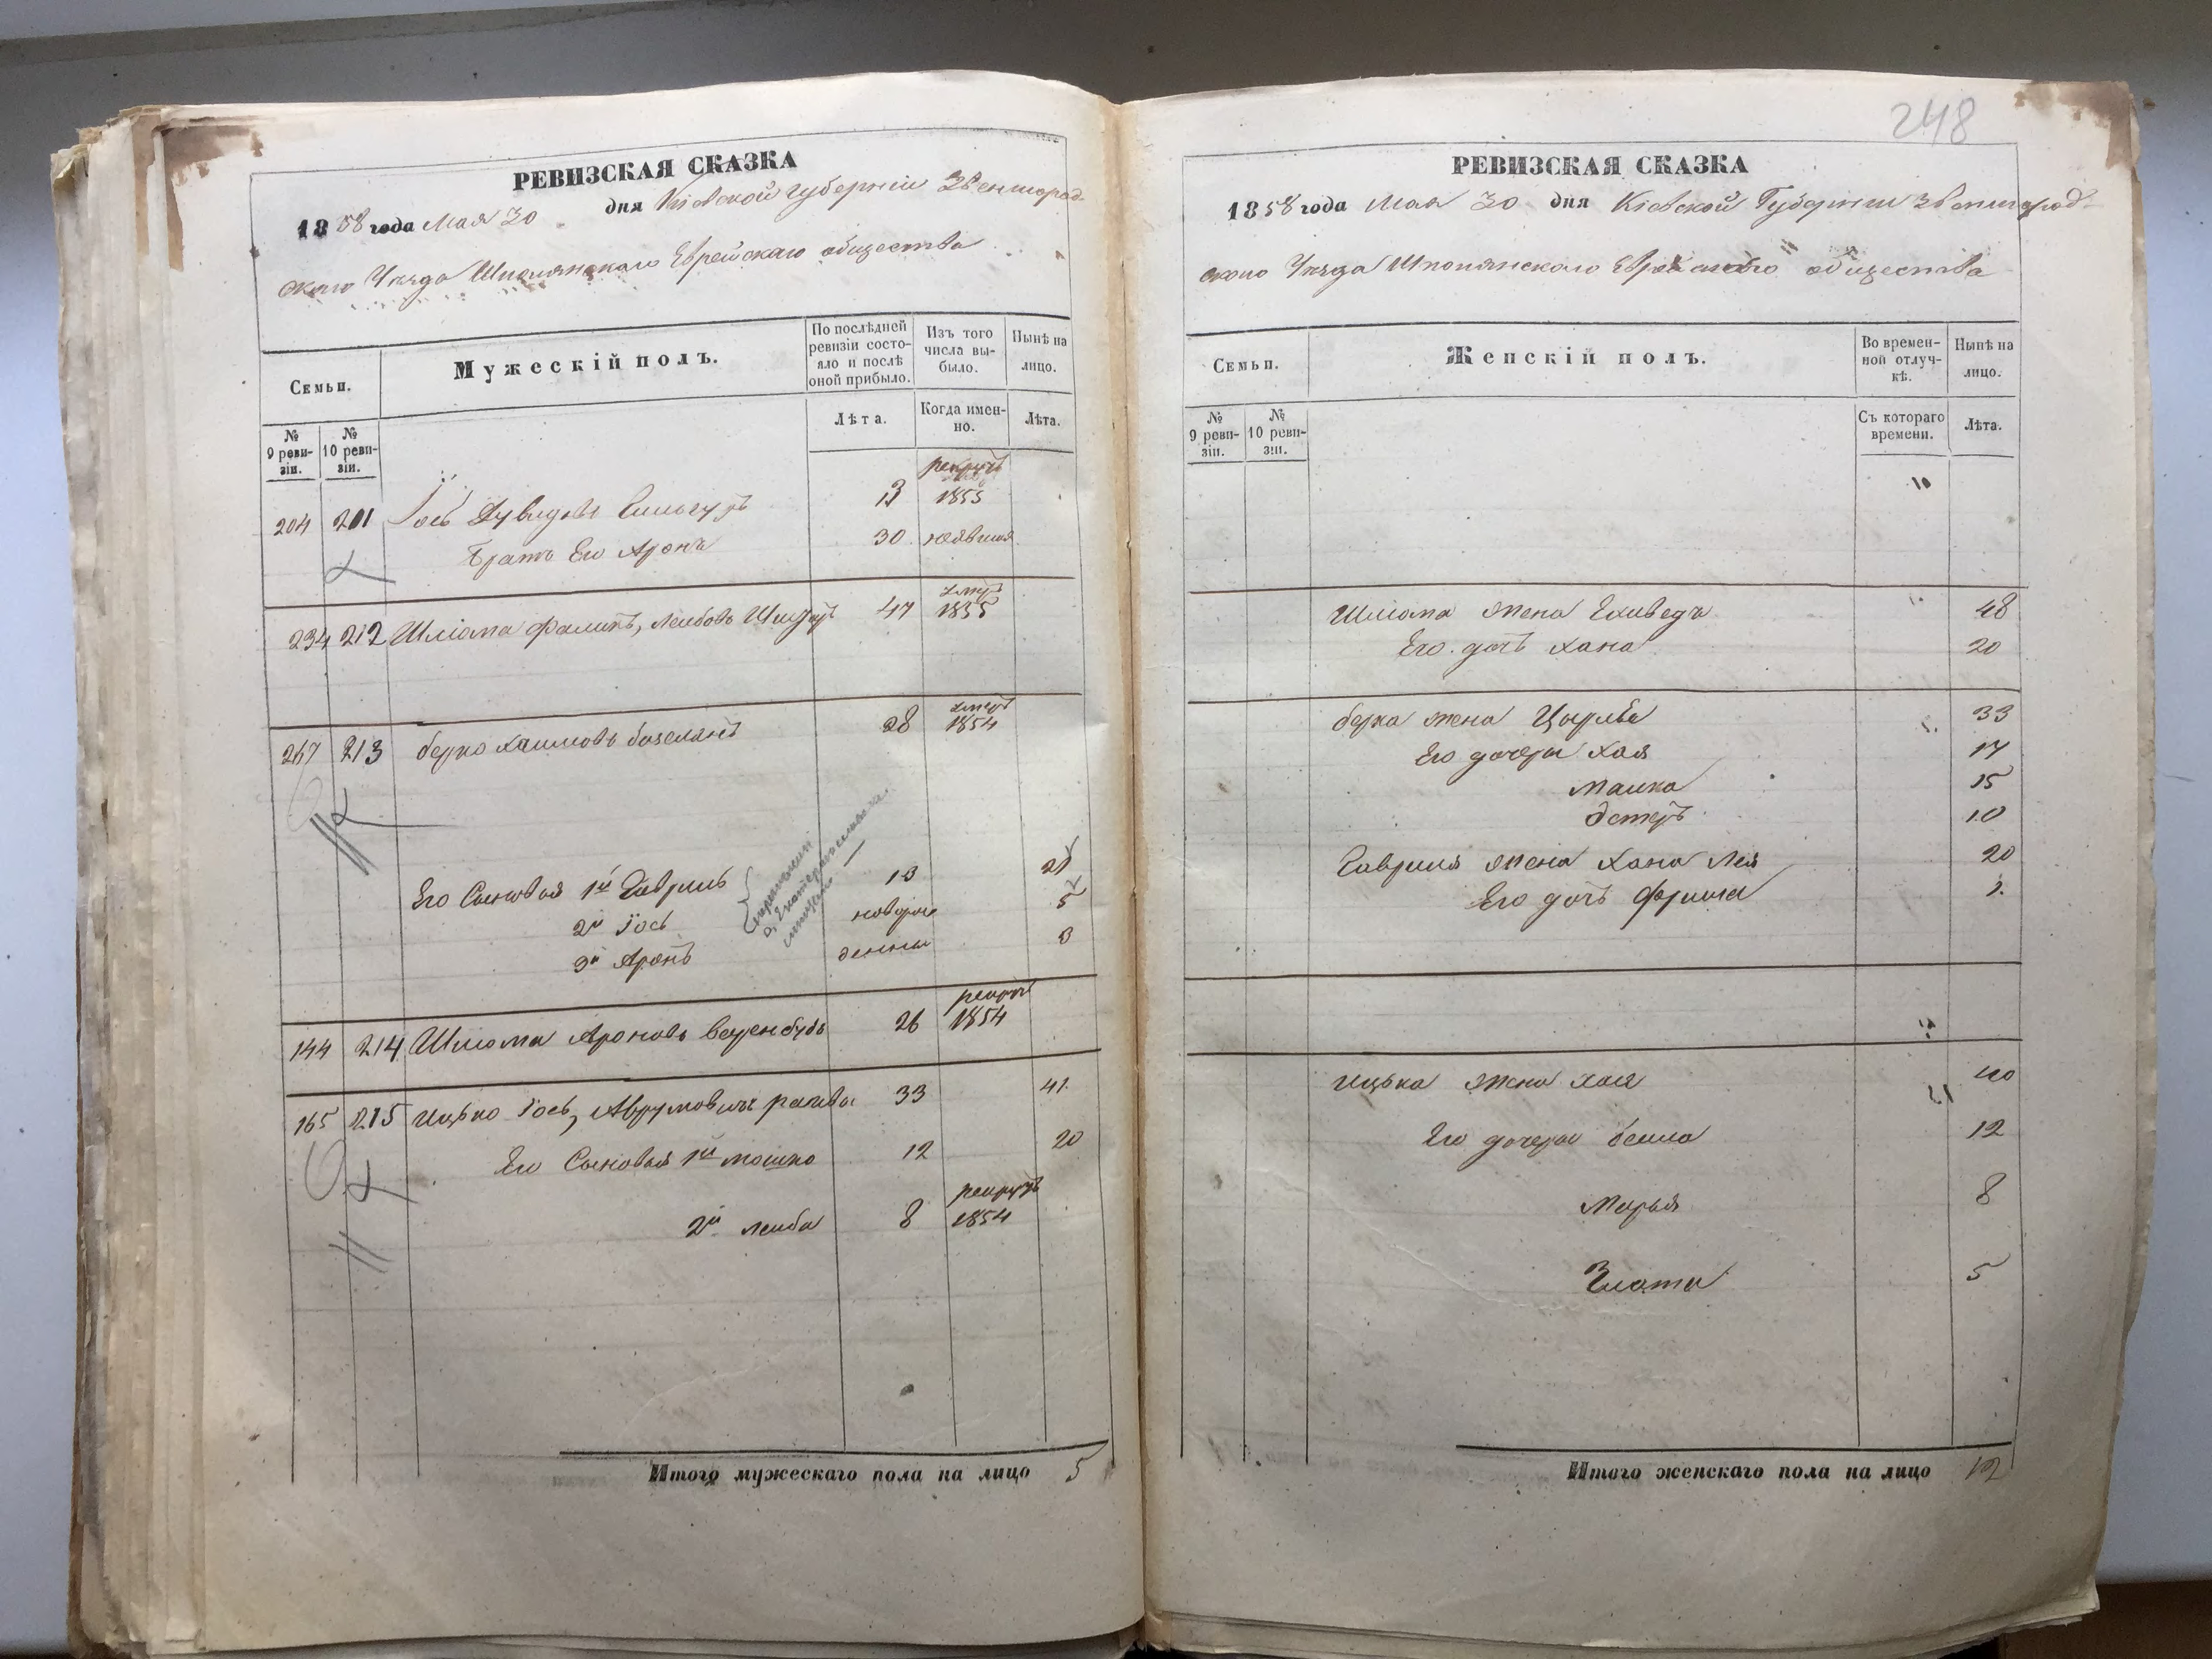 РЕВИЗСКАЯ СКАЗКА
1858 года Мая 30 дня Кіевской губерніи Звенигород-
скаго Уезда Шполянскаго Еврейскаго общества
Семьи.
Мужескій полъ.
По послѣдней ревизіи состояло и послѣ оной прибыло.
Изъ того числа выбыло.
Нынѣ на лицо.
№ 9 ревизіи.
№ 10 ревизіи.
Лѣта.
Когда именно.
Лѣта.
204 201 Іось 13 рекрутъ 1855
Братъ Его Аронъ 30 неявился
234 212 Шліома Фаликъ, Лейбовъ 47 умеръ 1855
267 213 Берко Хаимовъ 28 умеръ 1854
Его Сыновья 1й Гавриль 13 21
2й Іось новорож 5
3й Аронъ денны 3
144 214 Шліома Ароновъ 26 рекрутъ 1854
165 215 Ицько Іось, Аврумовичъ 33 41
Его Сыновья 1й Мошко 12 20
2й Лейба 8 рекрутъ 1854
Итого мужескаго пола на лицо 5
248
РЕВИЗСКАЯ СКАЗКА
1858 года Мая 30 дня Кіевской Губерніи Звенигород-
скаго Уезда Шполянскаго Еврейскаго общества
Семьи.
Женскій полъ.
Во временной отлучкѣ.
Нынѣ на лицо.
№ 9 ревизіи.
№ 10 ревизіи.
Съ котораго времени.
Лѣта.
Шліома жена Ехиведъ 48
Его дочь Хана 20
Берка жена Цырля 33
Его дочери Хая 17
Малка 15
Эстеръ 10
Гавриля жена Хана Лея 20
Его дочь Фрима 1
Ицька жена Хая 40
Его дочери Бейла 12
Марья 8
Злата 5
Итого женскаго пола на лицо 12